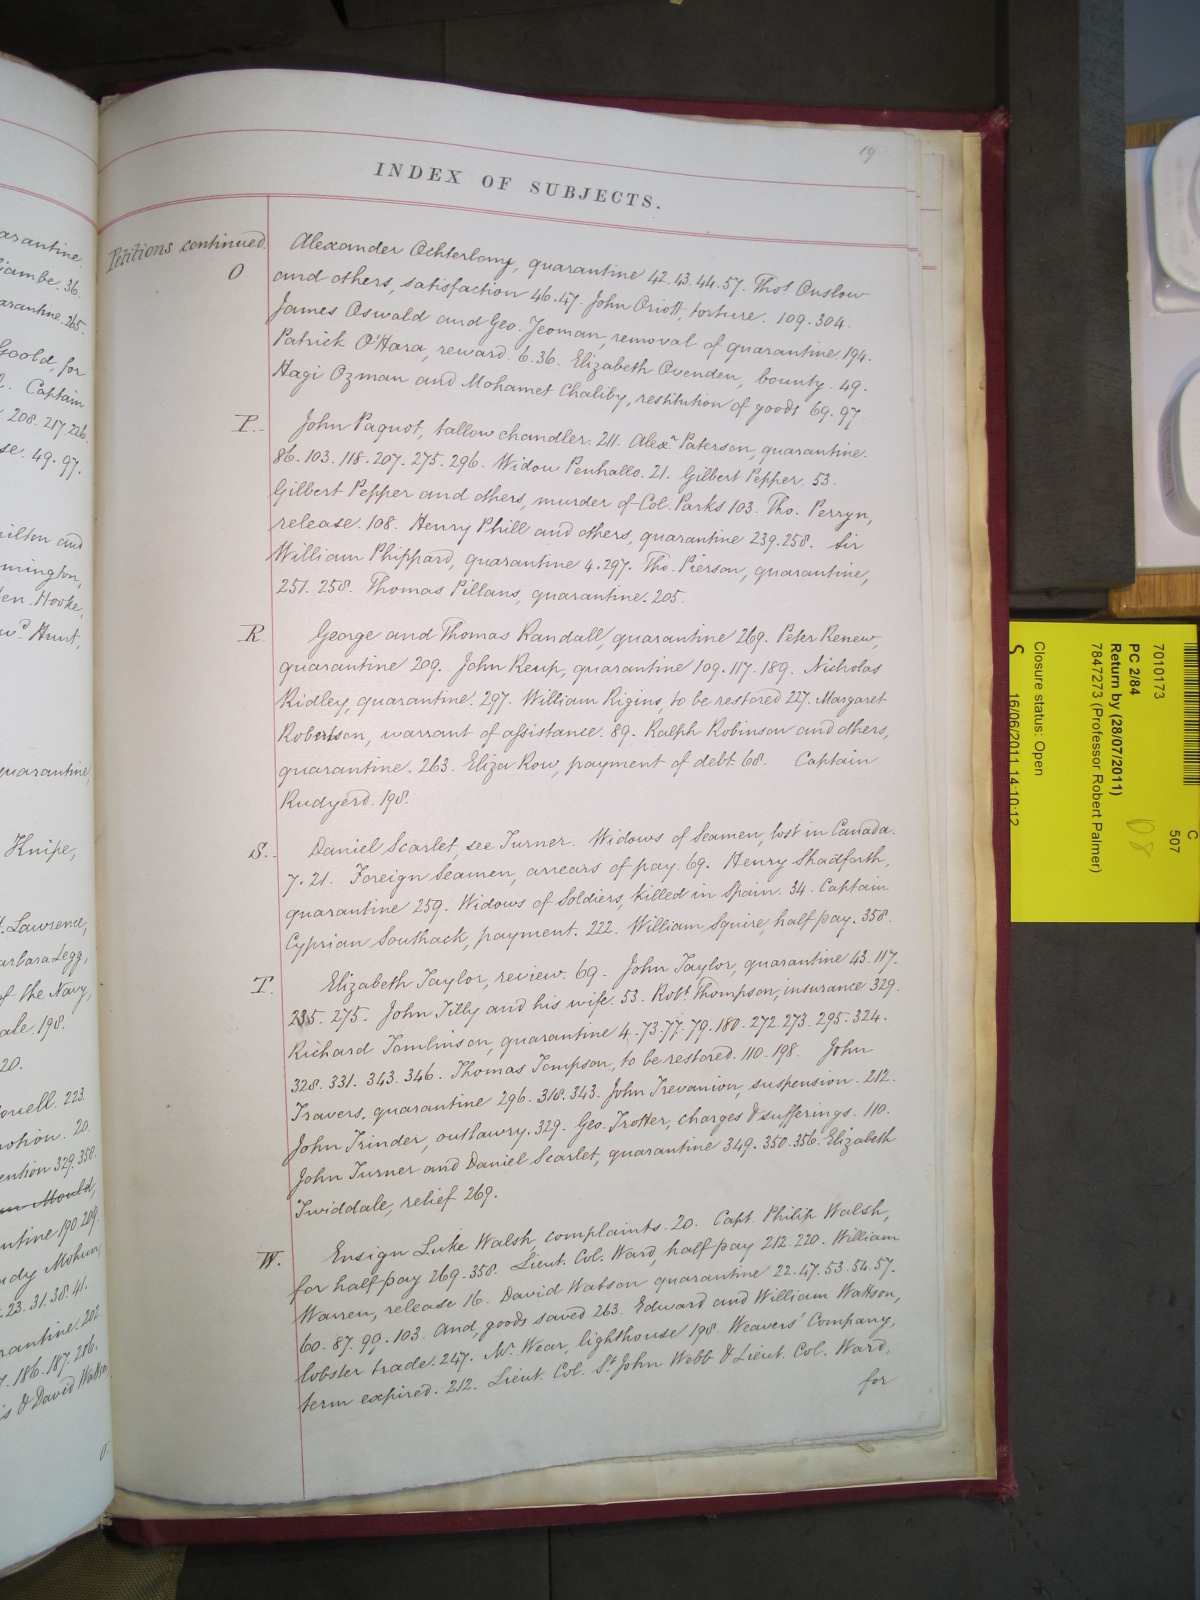 19
INDEX OF SUBJECTS.
Petitions continued.
O
Alexander Ochterlony, quarantine 42.43.44.57. Thos Onslow
and others, satisfaction 46.47. John Oriott, torture. 109.304.
James Oswald and Geo. Yeoman, removal of quarantine. 194.
Patrick O'Hara, reward. 6.36. Elizabeth Ovenden, bounty. 49.
Hagi Ozman and Mohamet Chaliby, restitution of goods 69.97.
P.
John Paquot, tallow chandler. 211. Alexr Paterson, quarantine.
86.103.118.207.275.296. Widow Penhallo. 21. Gilbert Pepper. 53.
Gilbert Pepper and others, murder of Col. Parks 103. Tho. Perryn,
release. 108. Henry Phill and others, quarantine 239.258. Sir
William Phippard, quarantine 4.297. Tho. Pierson, quarantine,
251.258. Thomas Pillans, quarantine. 205.
R.
George and Thomas Randall, quarantine 269. Peter Renew,
quarantine 209. John Reup, quarantine 109.117.189. Nicholas
Ridley, quarantine. 297. William Rigins, to be restored 227. Margaret
Robertson, warrant of assistance. 89. Ralph Robinson and others,
quarantine. 263. Eliza Row, payment of debt. 68. Captain
Rudyerd. 198.
S.
Daniel Scarlet, see Turner. Widows of Seamen, lost in Canada.
7.21. Foreign Seamen, arrears of pay. 69. Henry Shadforth,
quarantine 259. Widows of Soldiers, killed in Spain. 34. Captain
Cyprian Southack, payment. 222. William Squire, half pay. 358.
T.
Elizabeth Taylor, review. 69. John Taylor, quarantine 43.117.
235. 275. John Tilly and his wife. 53. Robt Thompson, insurance 329.
Richard Tomlinson, quarantine 4.73.77.79.180.272.273.295.324.
328.331.343.346. Thomas Tompson, to be restored. 110.198. John
Travers, quarantine 296.318.343. John Trevanion, suspension. 212.
John Trinder, outlawry. 329. Geo. Trotter, charges & sufferings. 110.
John Turner and Daniel Scarlet, quarantine 349.350.356. Elizabeth
Twiddale, relief 269.
W.
Ensign Luke Walsh complaints. 20. Capt. Philip Walsh,
for half pay 269.358. Lieut. Col. Ward, half pay 212.220. William
Warren, release 16. David Watson quarantine 22.47.53.54.57.
60.87.99.103. And, goods saved 263. Edward and William Wattson,
lobster trade. 247. Mr. Wear, lighthouse 198. Weavers' Company,
term expired. 212. Lieut. Col. St John Webb & Lieut. Col. Ward,
for
arantine.
jambe. 36.
arantine. 265.
Goold, for
Captain
208.217.226.
se. 49.97.
ilton and
mington,
en. Hooke,
wd Hunt,
quarantine,
Knipe,
t. Lawrence,
arbara Legg,
f the Navy,
ale. 198.
20.
onell. 223.
otion. 20.
ention 329.358.
Mould,
ntine 190.209.
ndy Mohun,
.23.31.38.41.
rantine. 202.
7.186.187.206.
is & David Watson
7010173
C
507
PC 2/84
Return by (28/07/2011)
7847273 (Professor Robert Palmer)
Closure status: Open
16/06/2011 14:10:12
S